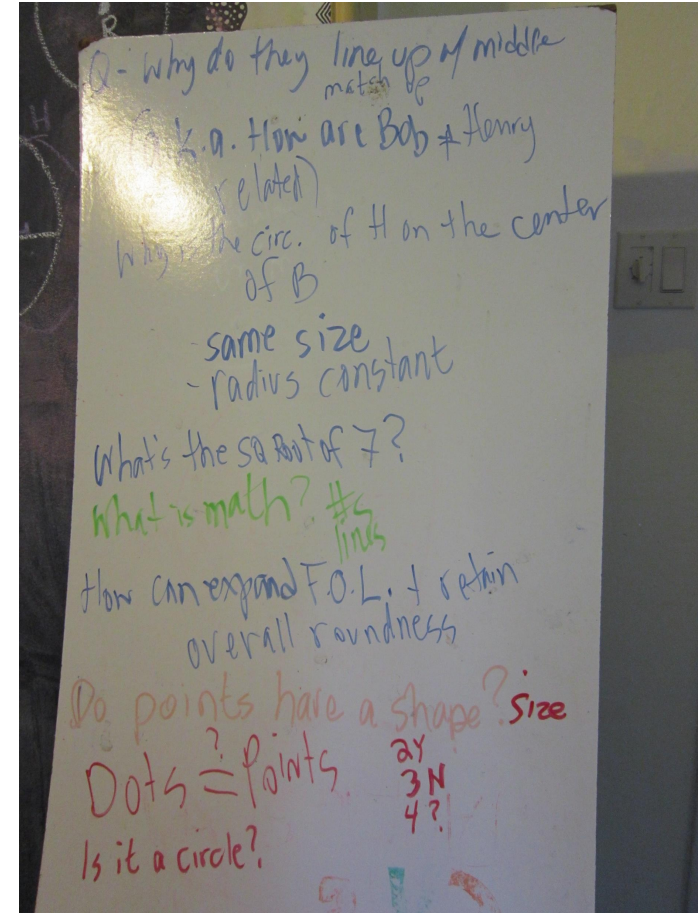 Q - Why do they line up w/ middle
match up
(a.k.a. How are Bob + Henry
related)
Why is the circ. of H on the center
of B
- same size
- radius constant
What's the SQ Root of 7?
What is math? #s
lines
How can expand F.O.L. + retain
overall roundness
Do points have a shape? Size
?
Dots = Points
2Y
3N
4?
Is it a circle?
R
H